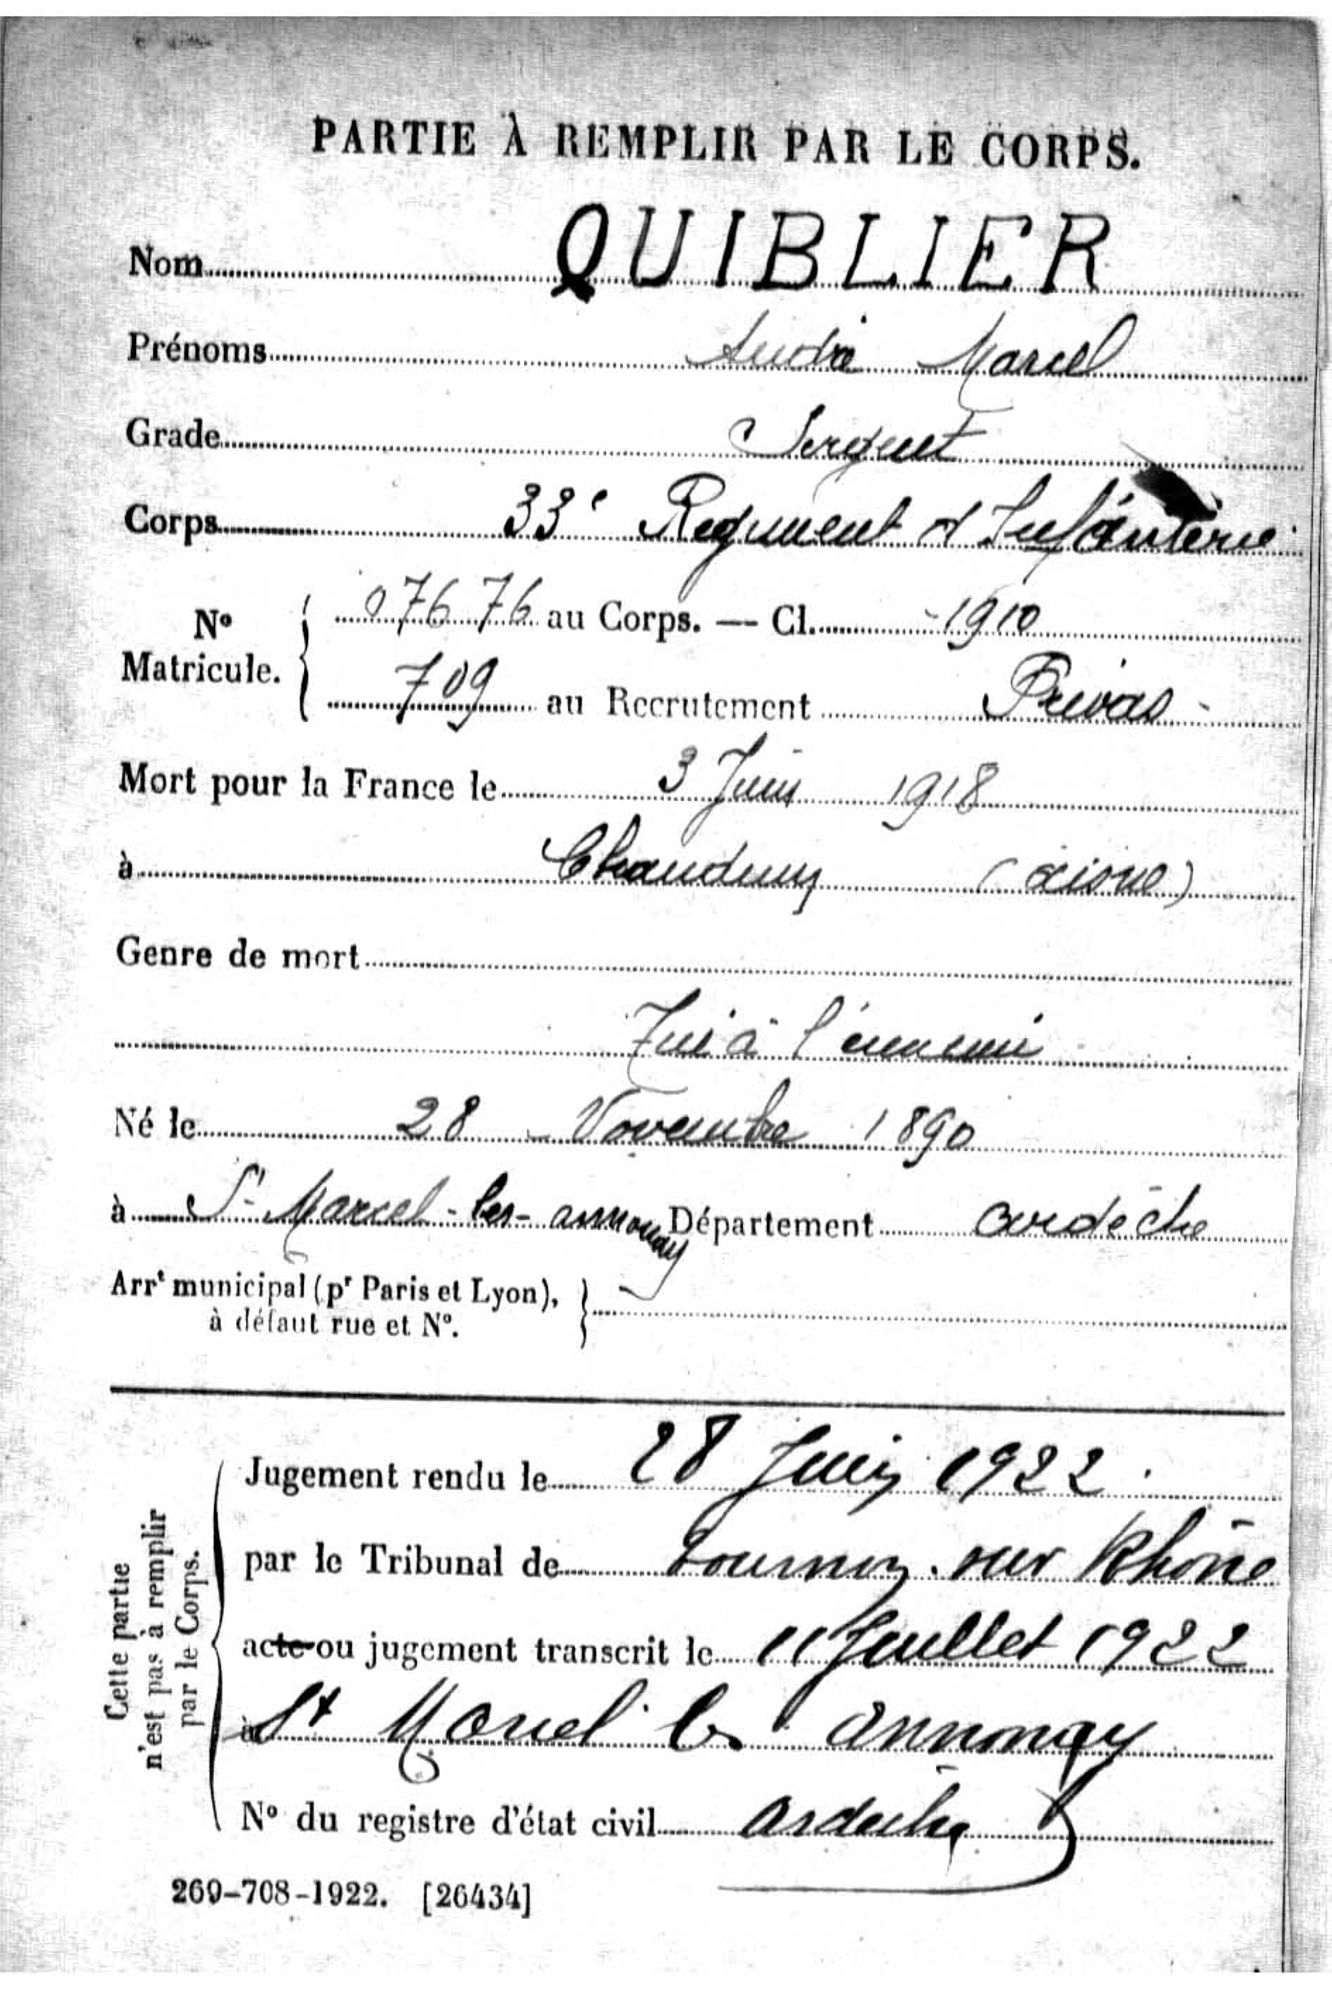 PARTIE À REMPLIR PAR LE CORPS.
Nom QUIBLIER
Prénoms André Marcel
Grade Sergent
Corps 33e Régiment d'Infanterie
No Matricule. 07676 au Corps. — Cl. 1910
709 au Recrutement Privas
Mort pour la France le 3 Juin 1918
à Chaudun (Aisne)
Genre de mort
Tué à l'ennemi
Né le 28 Novembre 1890
à St Marcel-les-annonay Département ardèche
Arrt municipal (pr Paris et Lyon),
à défaut rue et No.
Cette partie
n'est pas à remplir
par le Corps.
Jugement rendu le 28 Juin 1922
par le Tribunal de Tournon sur Rhône
acte ou jugement transcrit le 11 Juillet 1922
à St Marcel les annonay
No du registre d'état civil ardèche
269-708-1922. [26434]